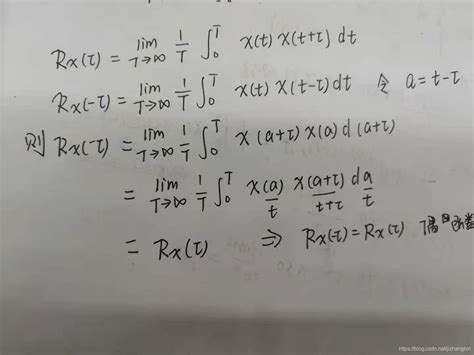 Rx(τ) = lim T→∞ 1/T ∫₀ᵀ x(t) x(t+τ) dt
Rx(-τ) = lim T→∞ 1/T ∫₀ᵀ x(t) x(t-τ) dt 令 a=t-τ
则 Rx(-τ) = lim T→∞ 1/T ∫₀ᵀ x(a+τ) x(a) d(a+τ)
= lim T→∞ 1/T ∫₀ᵀ x(a) x(a+τ) da
t t+τ t
= Rx(τ) ⇒ Rx(-τ)=Rx(τ) 偶函数
https://blog.csdn.net/jizhangbiri